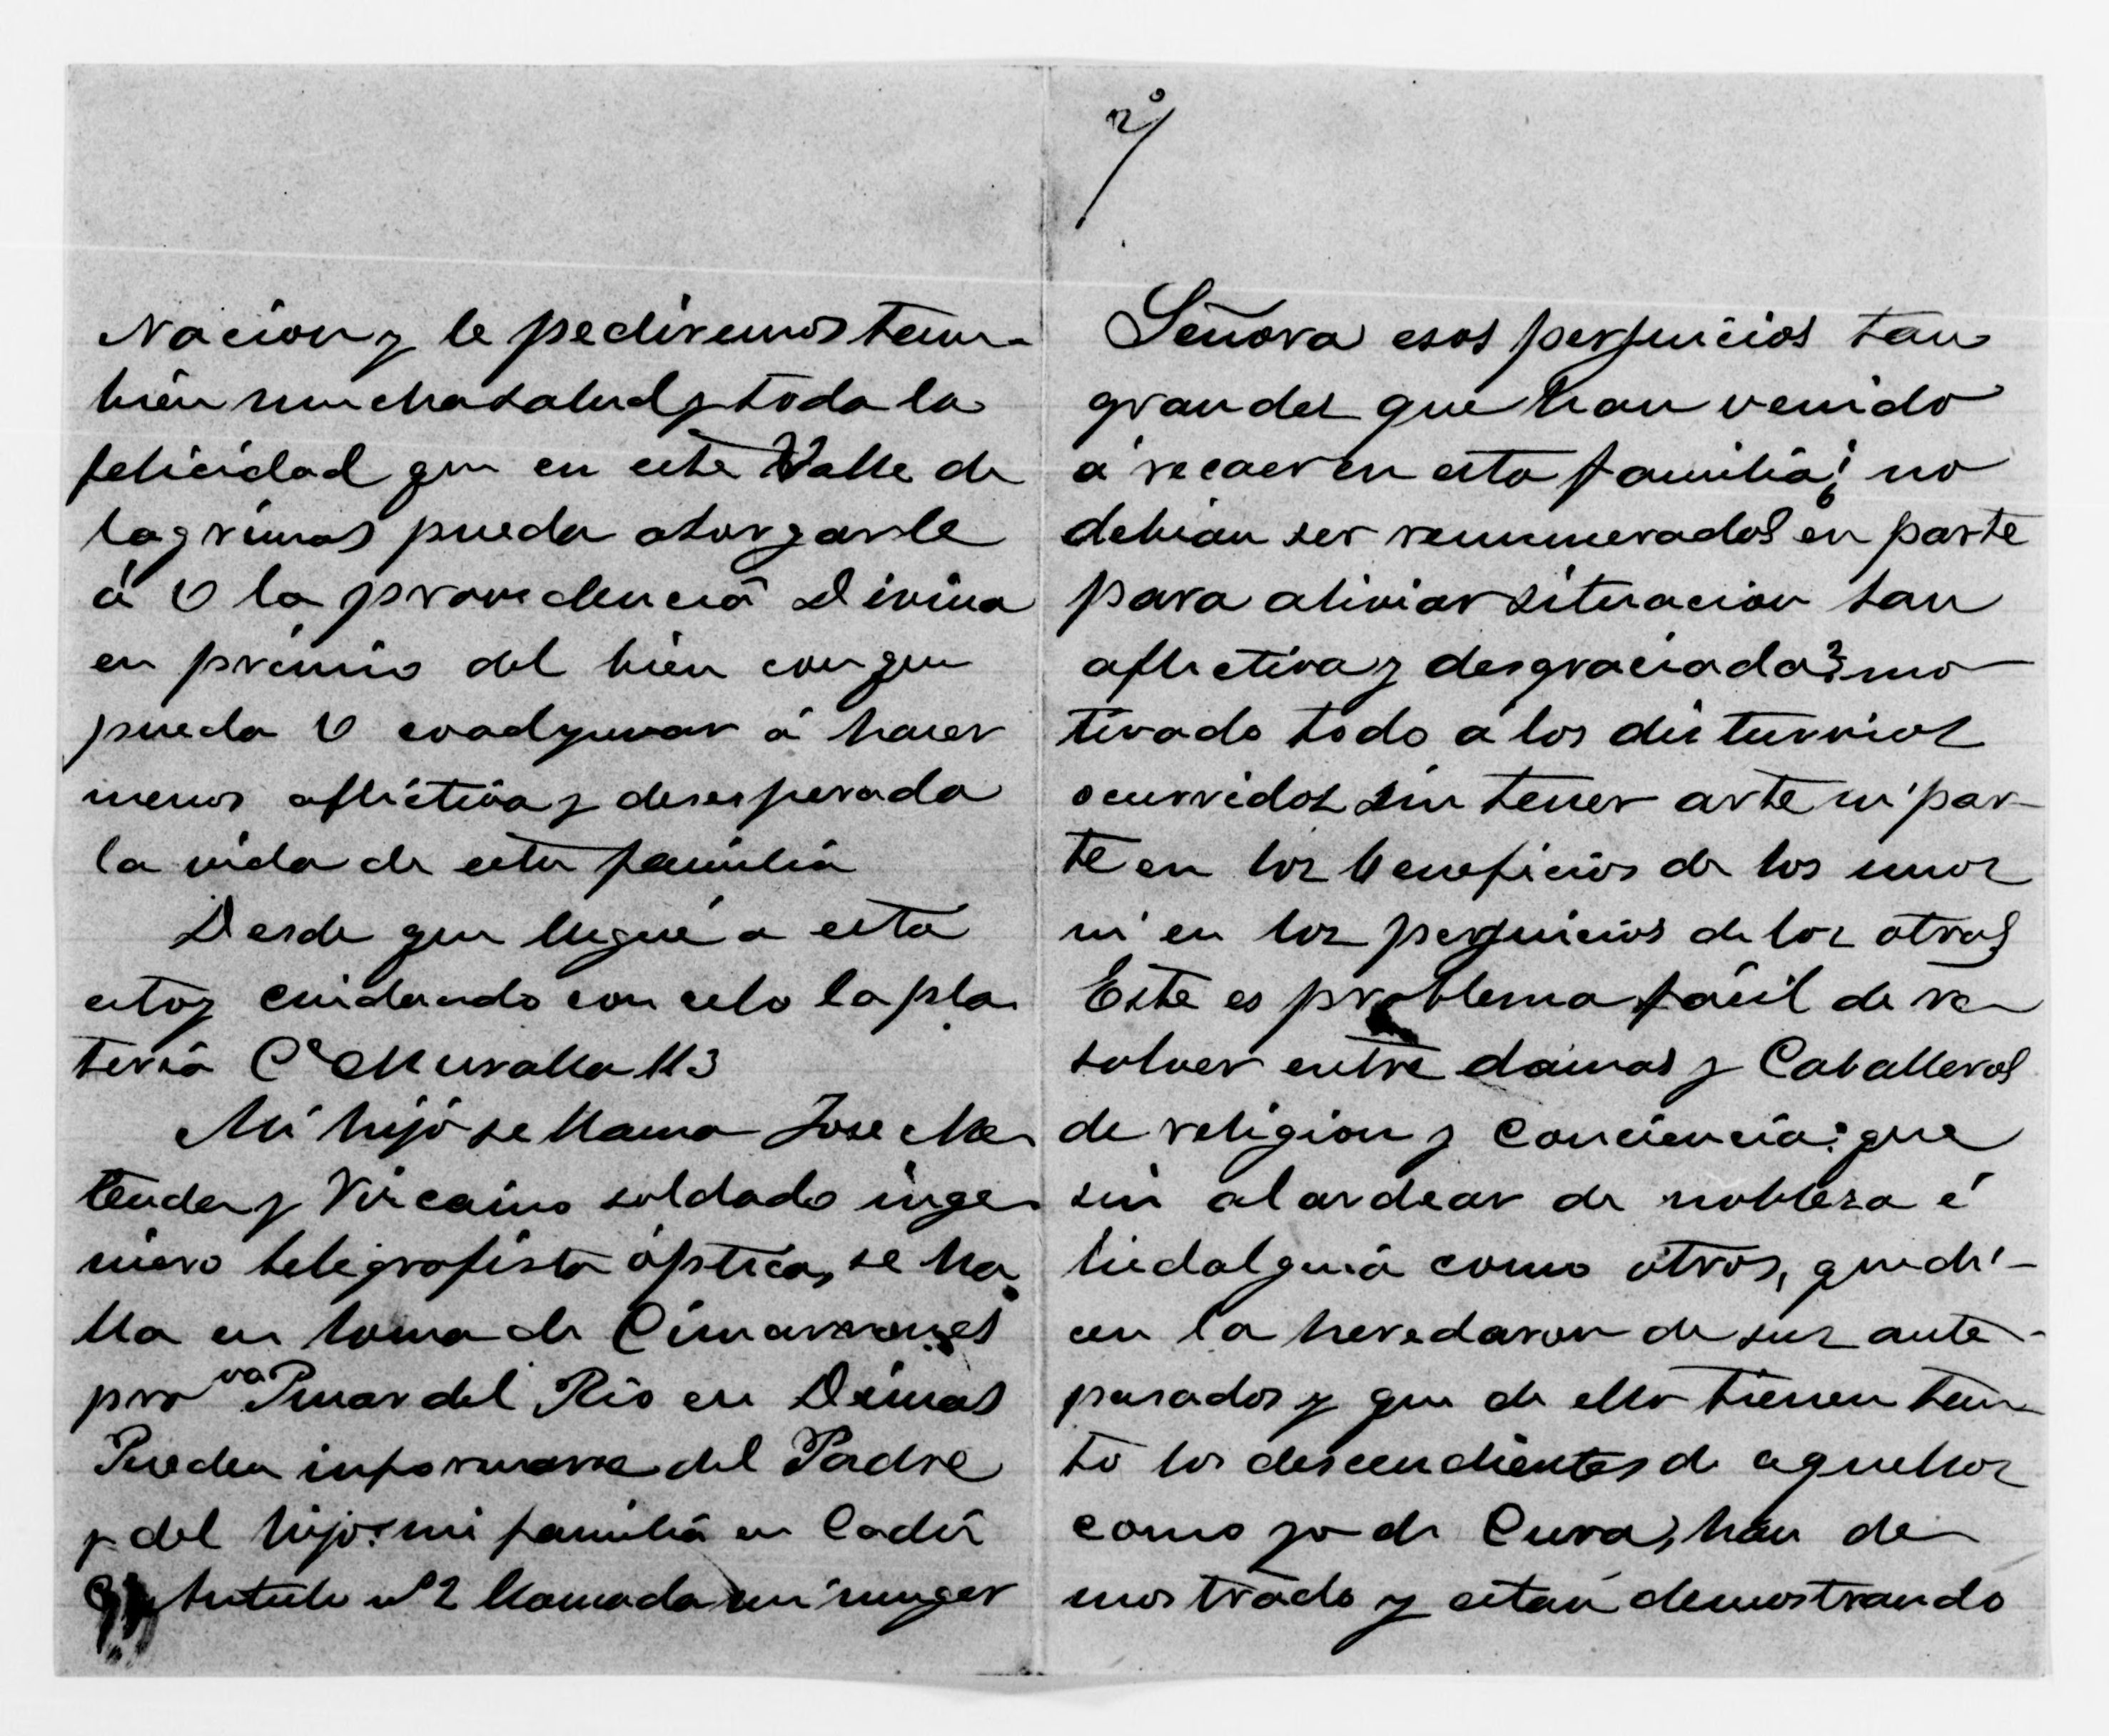 Nacion y le pediremos tam-
bien muncha salud y toda la
felicidad que en este Valle de
lagrimas pueda otorgarle
á V la providencia Divina
en prémio del bien con que
pueda V coadyuvar á hacer
menos aflictiva y desesperada
la vida de esta familia
Desde que llegué a esta
estoy cuidando con celo la pla
teria Ce Muralla 113
Mi hijo se llama Jose Me
tender y Viscaino soldado inge
niero telegrafista óptico, se ha
lla en loma de Cimarrones
prova Pinar del Rio en Dimas
Pueden informarse del Padre
y del hijo: mi familia en Cadiz
nº 2 llamada mi muger
2º
Señora esos perjuicios tan
grandes que han venido
á recaer en esta familia ¿ no
debian ser remunerados en parte
para aliviar situacion tan
aflictiva y desgraciada? mo
tivado todo a los disturvios
ocurridos sin tener arte ni par-
te en los beneficios de los unos
ni en los perjuicios de los otros
Este es problema fácil de re
solver entre damas y Caballeros
de religion y conciencia: que
sin alardear de nobleza é
hidalguia como otros, que di-
cen la heredaron de sus ante-
pasados y que de ello tienen tan
to los descendientes d aquellos
como yo de Cura, han de
mostrado y estan demostrando